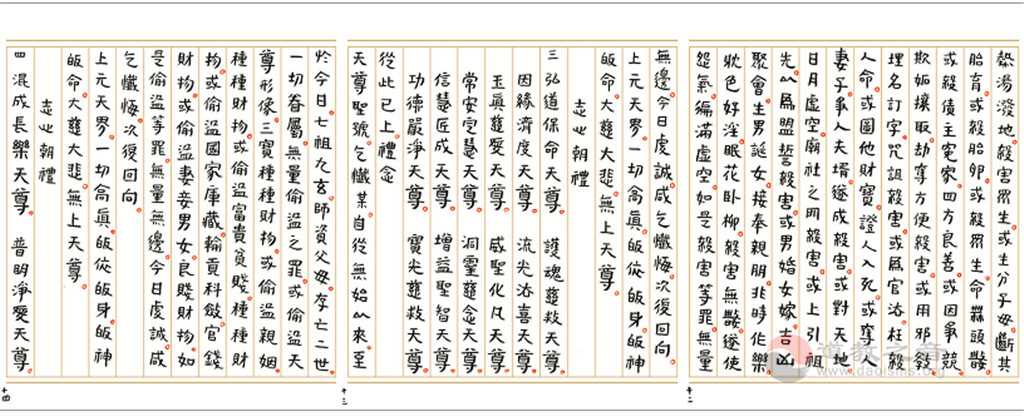 熱湯澆地殺害眾生或生分子母斷其
胎育或殺胎卵或殺眾生命無頭斃
或殺債主冤家四方良善或因爭競
欺妬攘取劫奪方便殺害或用邪
埋名訂字咒詛殺害或為官法枉殺
人命或圖他財寶證人入死或奪
妻子爭人夫壻遂成殺害或對天地
日月虛空廟社之所殺害或上引祖
先以為盟誓殺害或男婚女嫁吉凶
聚會生男誕女接奉親朋非時作樂
耽色好淫眠花卧柳殺害無斃遂使
怨氣徧滿虛空如是殺害等罪無量
十二
無邊今日虔誠咸乞懺悔次復回向
上元天界一切高真皈依皈身皈神
皈命大慈大悲無上天尊
志心朝禮
三弘道保命天尊 護魂慈救天尊
因緣濟度天尊 流光法喜天尊
玉真慈愛天尊 威聖化凡天尊
常安定慧天尊 洞靈慈念天尊
信慧匠成天尊 增益聖智天尊
功德嚴淨天尊 寶光慈救天尊
從此已上禮念
天尊聖號乞懺某自從無始以來至
十三
於今日七祖九玄師資父母存亡三世
一切眷屬無量偷盜之罪或偷盜天
尊形像三寶種種財物或偷盜親姻
種種財物或偷盜富貴貧賤種種財
物或偷盜國家庫藏輸貢科斂官錢
財物或偷盜妻妾男女良賤財物如
是偷盜等罪無量無邊今日虔誠咸
乞懺悔次復回向
上元天界一切高真皈依皈身皈神
皈命大慈大悲無上天尊
志心朝禮
四混成長樂天尊 普明淨愛天尊
十四
道教之音
www.daoisms.org